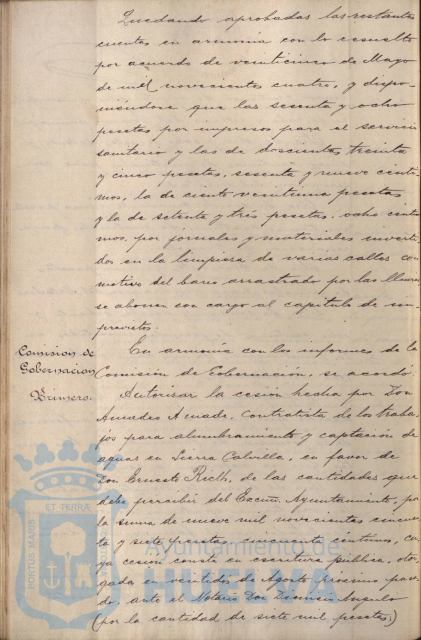 Quedando aprobadas las restantes
cuentas en armonia con lo resuelto
por acuerdo de veinticinco de Mayo
de mil novecientos cuatro, y dispo-
niéndose que las sesenta y ocho
pesetas por impresos para el servicio
sanitario y las de doscientas treinta
y cinco pesetas, sesenta y nueve centi-
mos, la de ciento veintiuna pesetas
y la de setenta y tres pesetas, ocho centi-
mos, por jornales y materiales inverti-
dos en la limpieza de varias calles con
motivo del barro arrastrado por las lluvias
se abonen con cargo al capitulo de im-
previstos.
Comisión de
Gobernación
Primero.
En armonia con los informes de la
Comisión de Gobernación, se acordó
Autorisar la cesión hecha por Don
Amadeo Amade, contratista de los traba-
jos para alumbramiento y captación de
aguas en Sierra Calvilla, en favor de
Don Ernesto Rieth, de las cantidades que
debe percibir del Excmo. Ayuntamiento, por
la suma de nueve mil novecientas cincuen-
ta y siete pesetas cincuenta centimos, cu-
ya cesión consta en escritura pública, otor-
gada en veintidos de Agosto proximo pasa-
do, ante el Notario Don Dionisio Angulo
(por la cantidad de siete mil pesetas.)
PORTUS MARIS ET TERRÆ
Ayuntamiento de
HUELVA